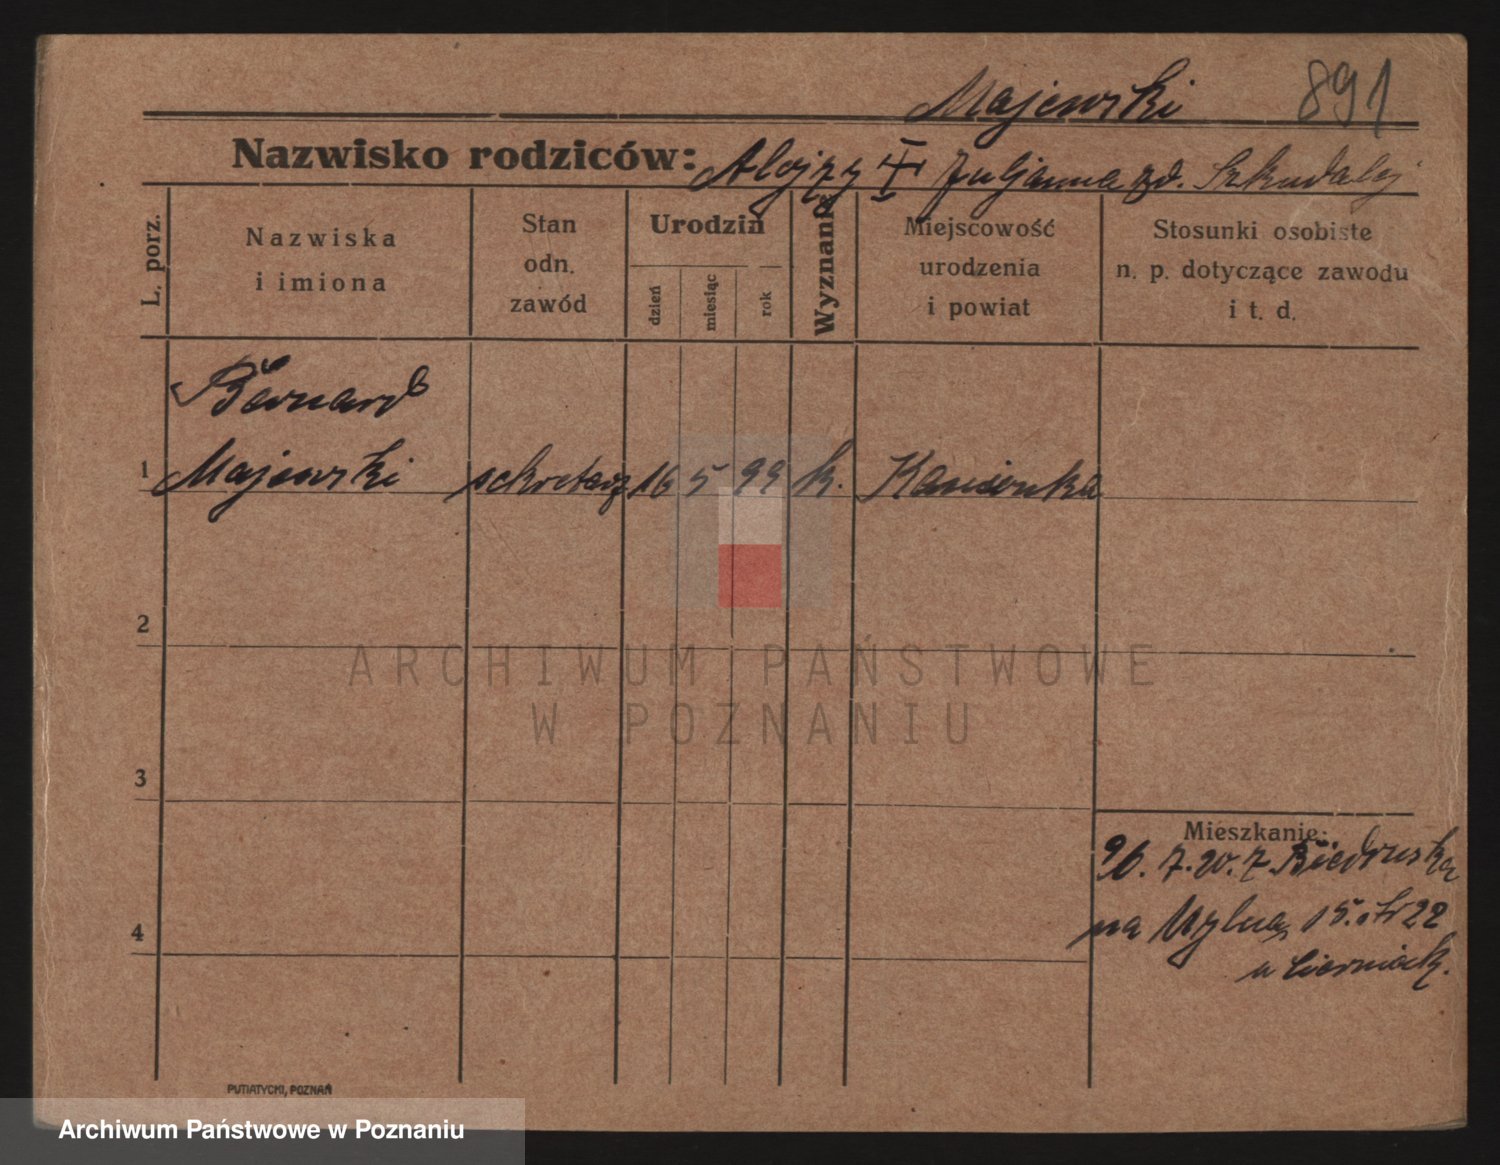 Majewski 891
Nazwisko rodziców: Alojzy Juljanna zd. Szkudalej
L. porz.
Nazwiska
i imiona
Stan
odn.
zawód
Urodzin
dzień
miesiąc
rok
Wyznanie
Miejscowość
urodzenia
i powiat
Stosunki osobiste
n. p. dotyczące zawodu
i t. d.
Bernard
1 Majewski sekretarz 16 5 99 k. Kamionka
2
ARCHIWUM PAŃSTWOWE
W POZNANIU
3
Mieszkanie:
7. Biedruska
4
na 15. 22
u
PUTIATYCKI, POZNAŃ
Archiwum Państwowe w Poznaniu